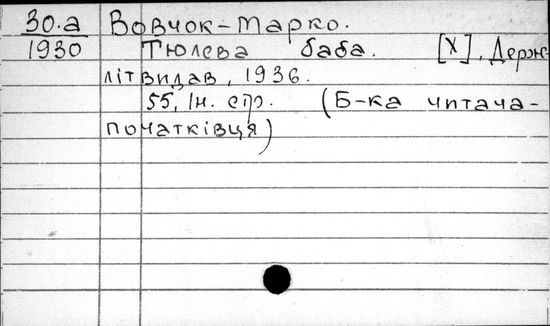 30.а Вовчок-Марко.
1930 Тюлева баба. [Х], Держ-
літвидав, 1936.
55, Iн. стр. (Б-ка читача-
початківця)